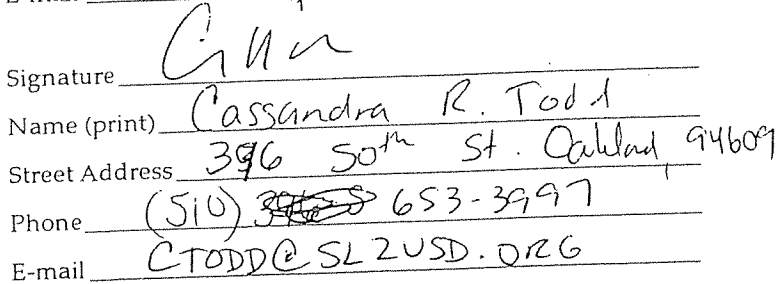 Signature
Name (print) Cassandra R. Todd
Street Address 396 50th St. Oakland, 94609
Phone (510) 653-3997
E-mail CTODD@SLZUSD.ORG